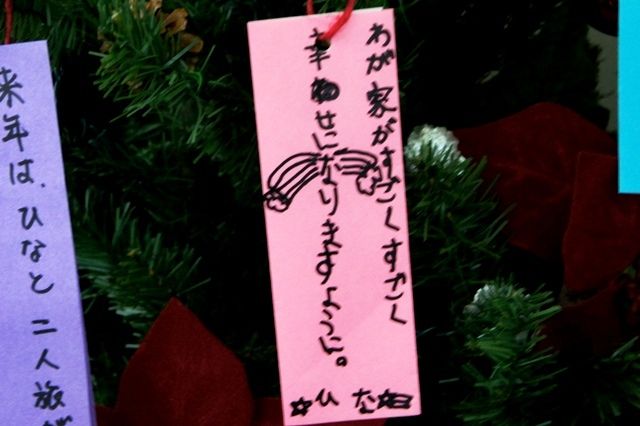 わが家がすごくすごく
幸せになりますように。
ひな
来年は、ひなと二人旅が